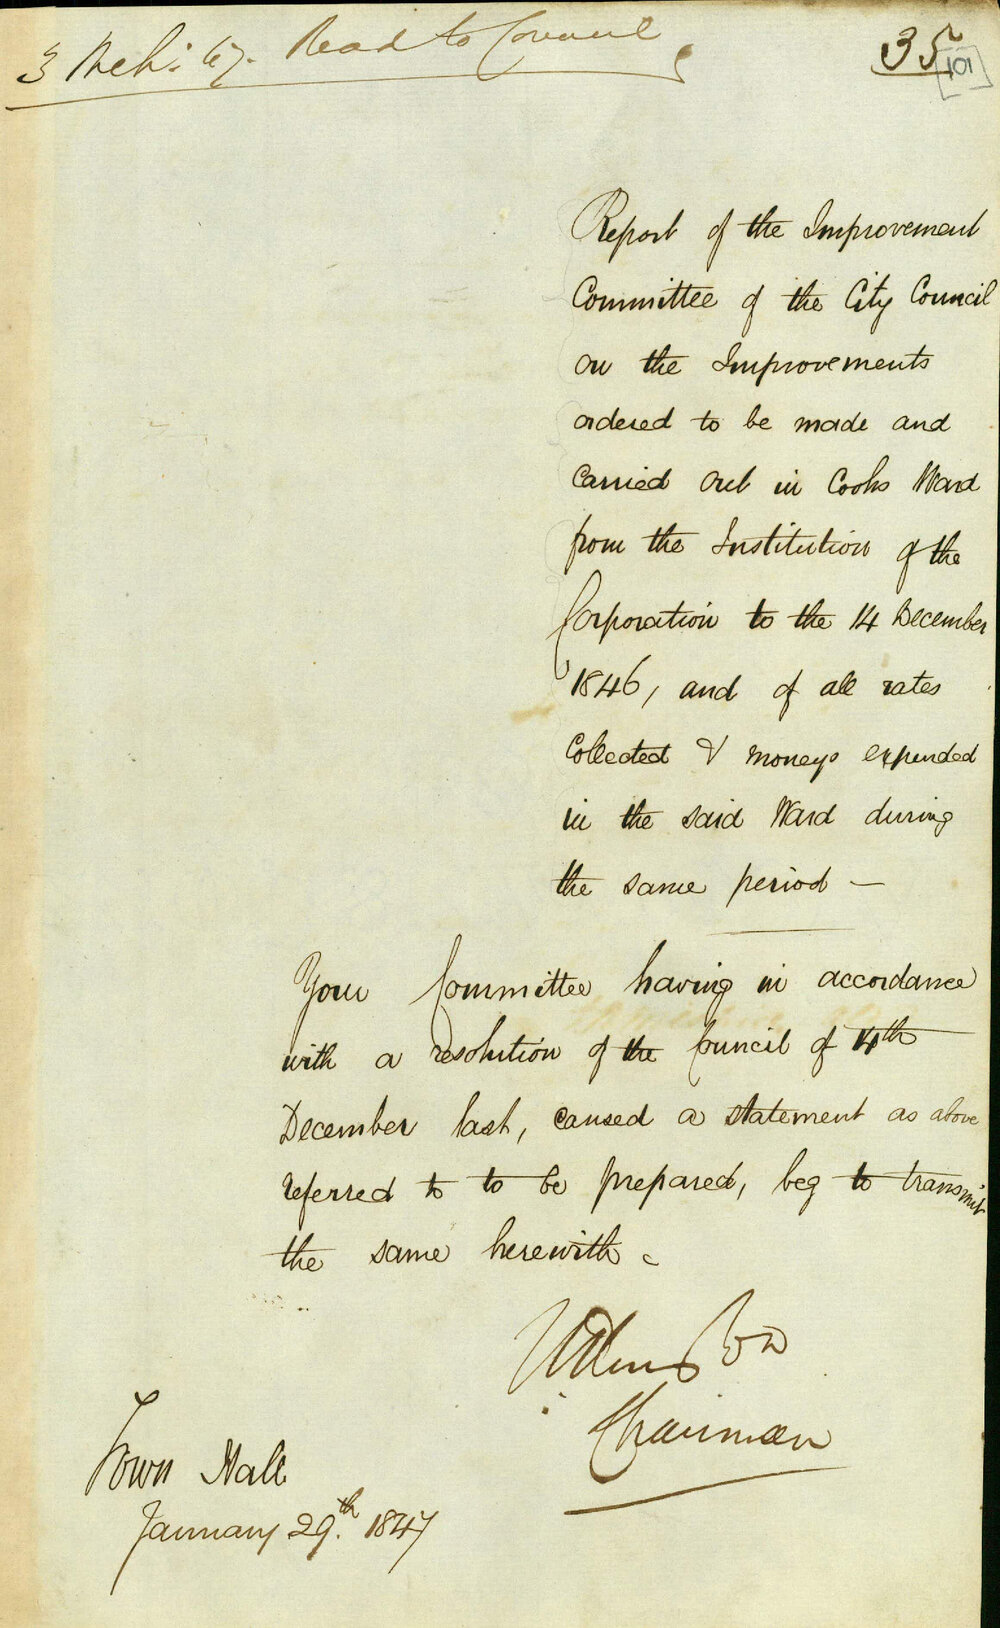 3 Mch: 47. Read to Council
35
101
Report of the Improvement
Committee of the City Council
on the Improvements
ordered to be made and
Carried out in Cooks Ward
from the Institution of the
Corporation to the 14 December
1846, and of all rates
Collected & moneys expended
in the said Ward during
the same period —
Your Committee having in accordance
with a resolution of the Council of 14th
December last, caused a statement as above
referred to to be prepared, beg to transmit
the same herewith
Chairman
Town Hall
January 29th. 1847